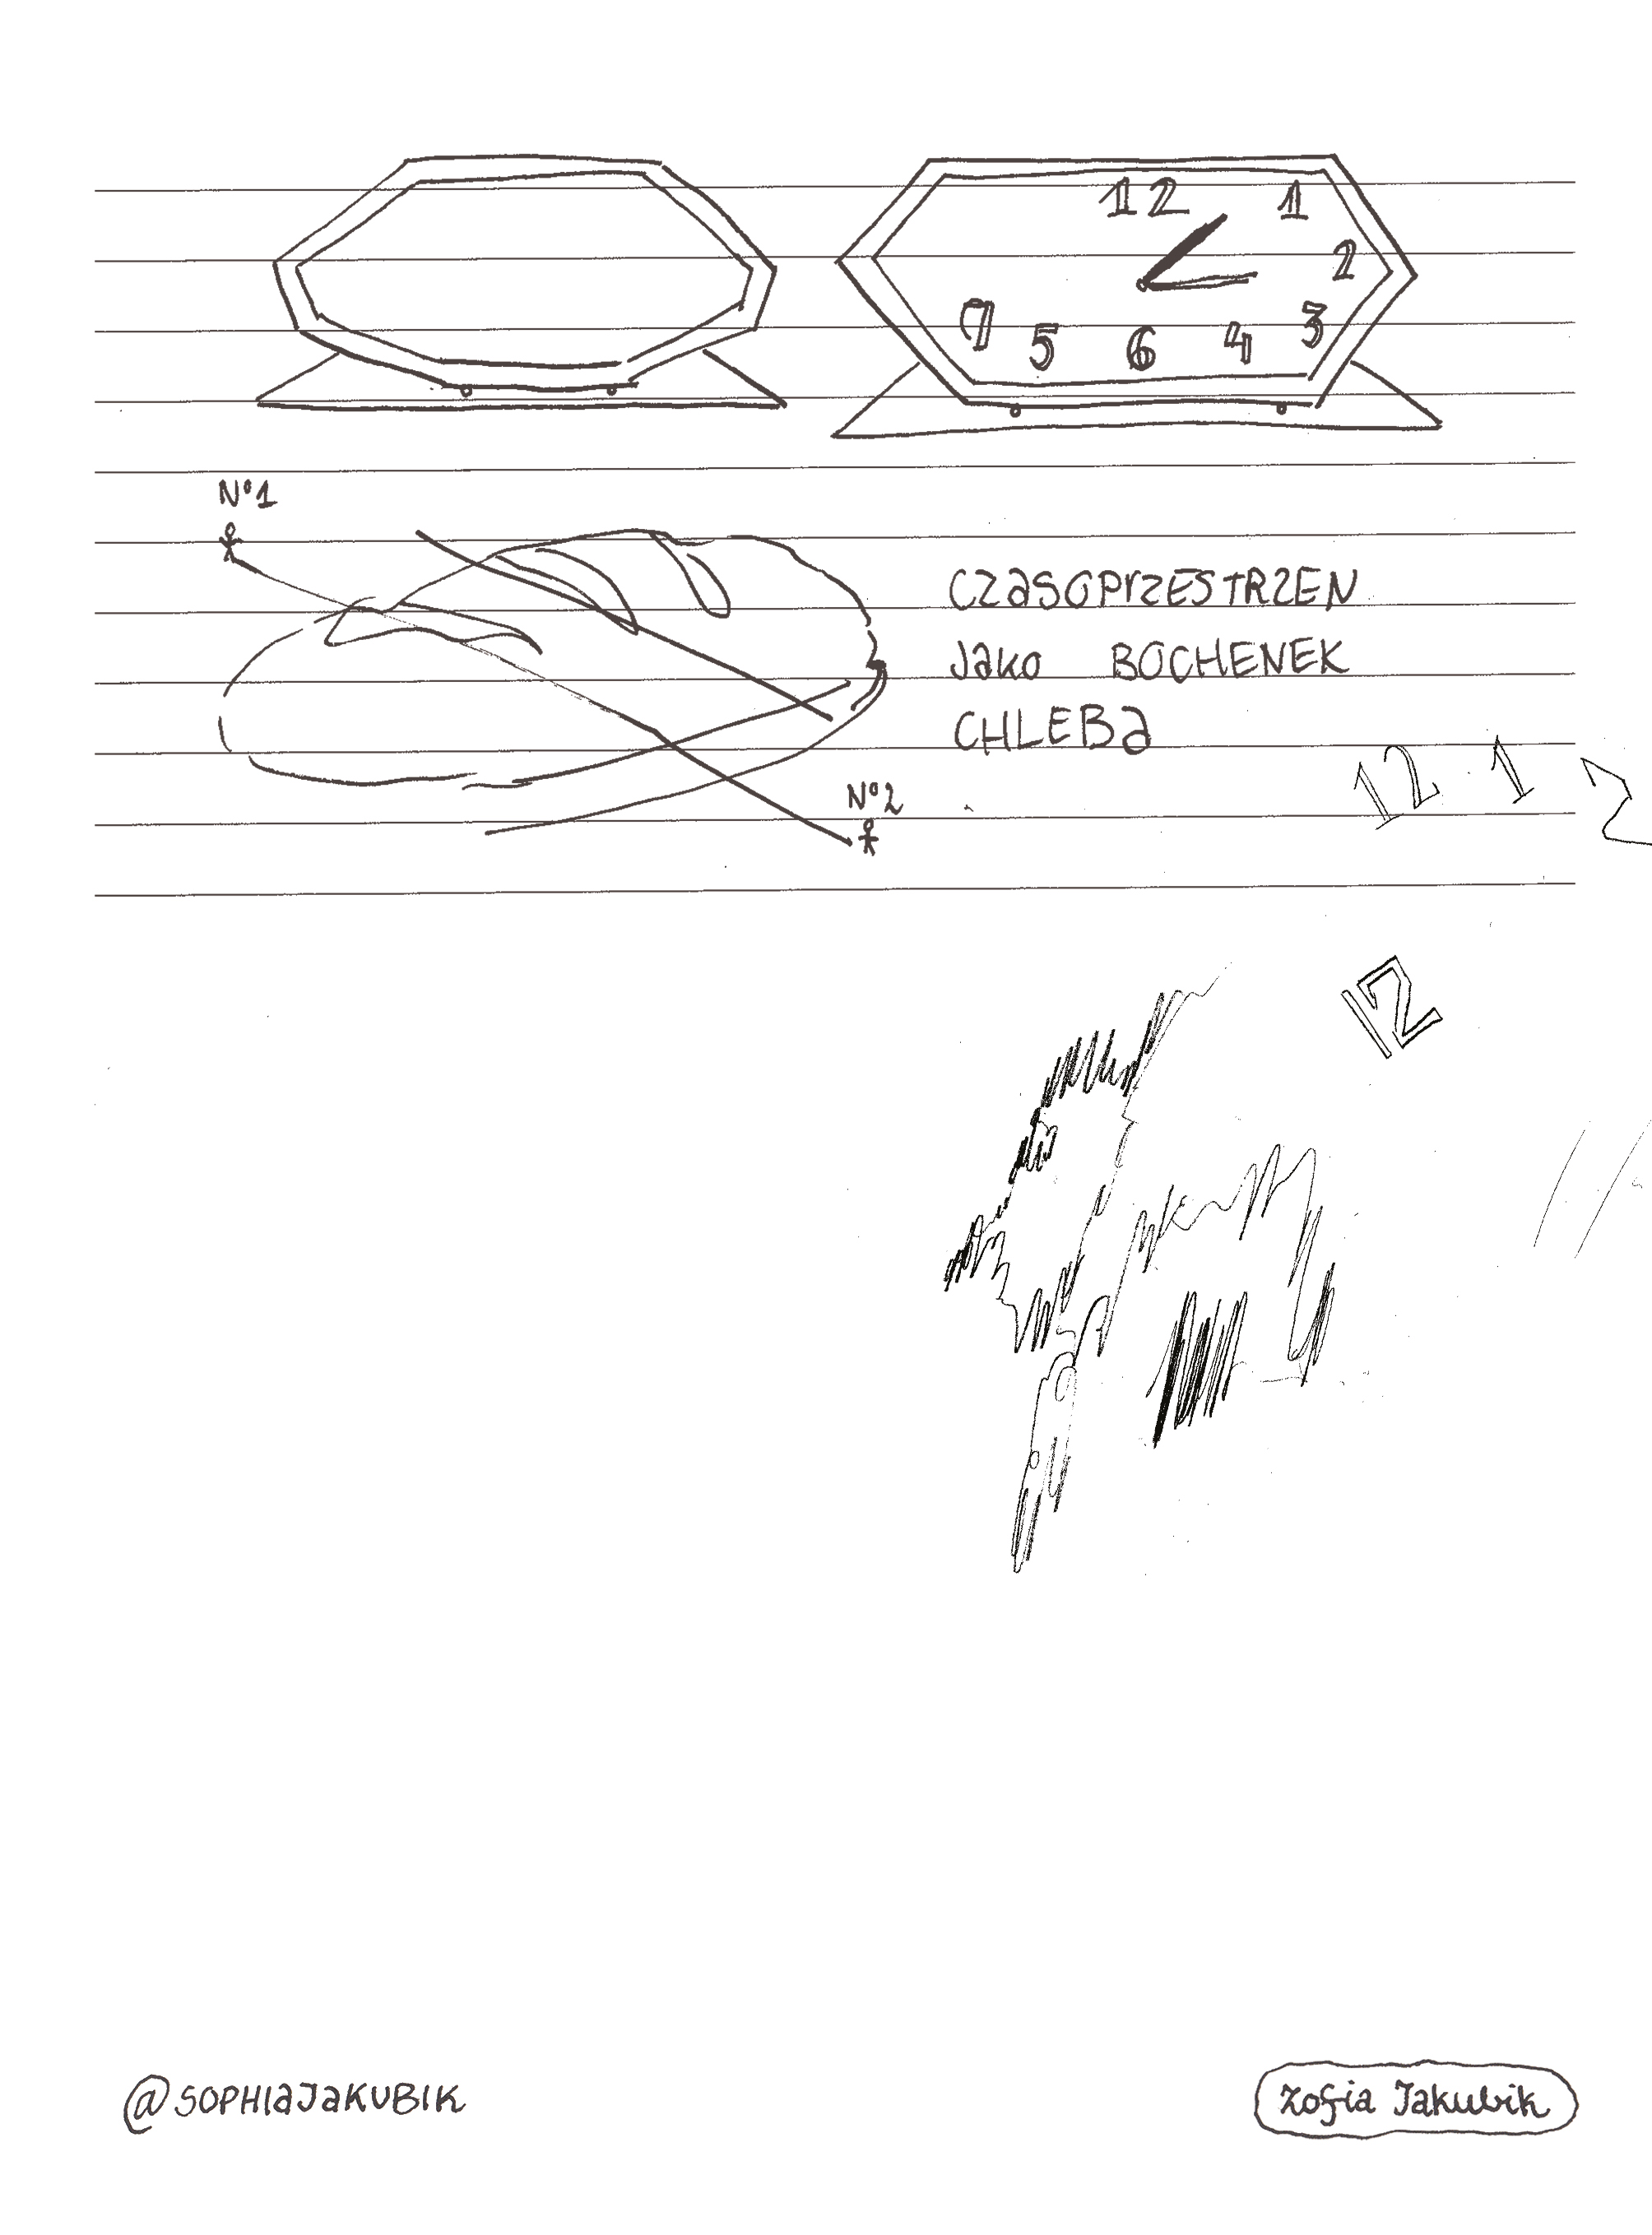 12 1
2
3
7 5 6 4
Nº1
CZASOPRZESTRZEN
Jako BOCHENEK
CHLEBA
Nº2
12 1 2
12
@SOPHIAJAKUBIK
Zofia Jakubik